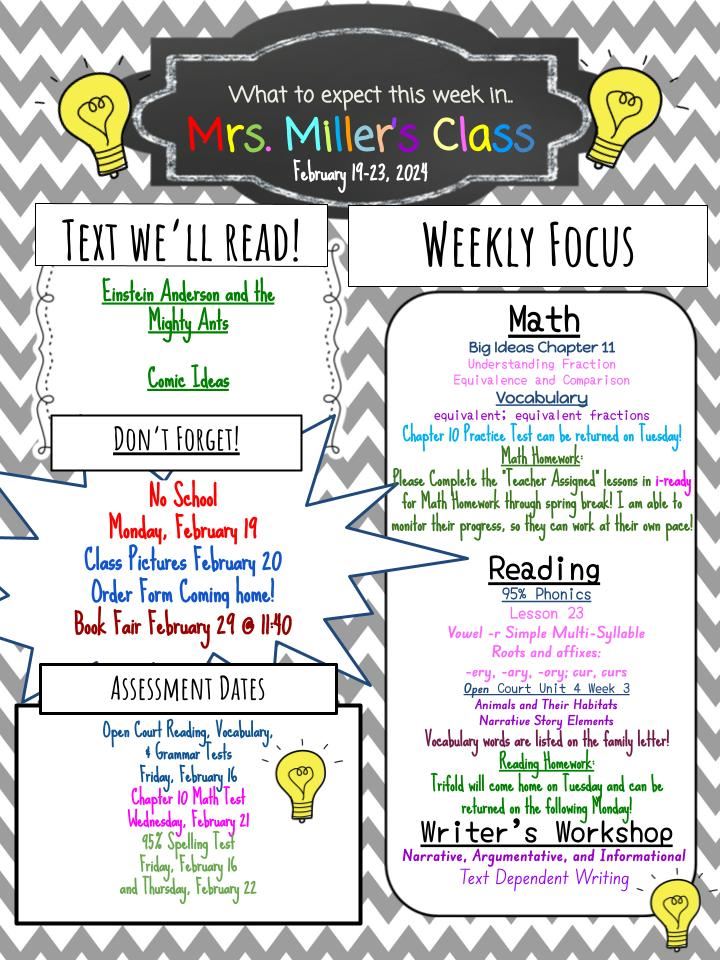 What to expect this week in..
Mrs. Miller's Class
February 19-23, 2024
Text we'll read!
Einstein Anderson and the
Mighty Ants
Comic Ideas
Don't Forget!
No School
Monday, February 19
Class Pictures February 20
Order Form Coming home!
Book Fair February 29 @ 11:40
Assessment Dates
Open Court Reading, Vocabulary,
& Grammar Tests
Friday, February 16
Chapter 10 Math Test
Wednesday, February 21
95% Spelling Test
Friday, February 16
and Thursday, February 22
Weekly Focus
Math
Big Ideas Chapter 11
Understanding Fraction
Equivalence and Comparison
Vocabulary
equivalent; equivalent fractions
Chapter 10 Practice Test can be returned on Tuesday!
Math Homework:
Please Complete the "Teacher Assigned" lessons in i-ready
for Math Homework through spring break! I am able to
monitor their progress, so they can work at their own pace!
Reading
95% Phonics
Lesson 23
Vowel -r Simple Multi-Syllable
Roots and affixes:
-ery, -ary, -ory; cur, curs
Open Court Unit 4 Week 3
Animals and Their Habitats
Narrative Story Elements
Vocabulary words are listed on the family letter!
Reading Homework:
Trifold will come home on Tuesday and can be
returned on the following Monday!
Writer's Workshop
Narrative, Argumentative, and Informational
Text Dependent Writing